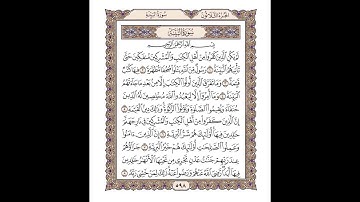 الجزء الثلاثون
سورة البينة
سُورَةُ البَيِّنَةِ
بِسْمِ اللَّهِ الرَّحْمَٰنِ الرَّحِيمِ
لَمْ يَكُنِ الَّذِينَ كَفَرُوا مِنْ أَهْلِ الْكِتَٰبِ وَالْمُشْرِكِينَ مُنفَكِّينَ حَتَّىٰ
تَأْتِيَهُمُ الْبَيِّنَةُ ١ رَسُولٌ مِّنَ اللَّهِ يَتْلُوا صُحُفًا مُّطَهَّرَةً ٢ فِيهَا كُتُبٌ
قَيِّمَةٌ ٣ وَمَا تَفَرَّقَ الَّذِينَ أُوتُوا الْكِتَٰبَ إِلَّا مِنۢ بَعْدِ مَا جَآءَتْهُمُ
الْبَيِّنَةُ ٤ وَمَآ أُمِرُوٓا إِلَّا لِيَعْبُدُوا اللَّهَ مُخْلِصِينَ لَهُ الدِّينَ
حُنَفَآءَ وَيُقِيمُوا الصَّلَوٰةَ وَيُؤْتُوا الزَّكَوٰةَ وَذَٰلِكَ دِينُ الْقَيِّمَةِ ٥
إِنَّ الَّذِينَ كَفَرُوا مِنْ أَهْلِ الْكِتَٰبِ وَالْمُشْرِكِينَ فِي نَارِ جَهَنَّمَ
خَٰلِدِينَ فِيهَآ أُولَٰٓئِكَ هُمْ شَرُّ الْبَرِيَّةِ ٦ إِنَّ الَّذِينَ ءَامَنُوا
وَعَمِلُوا الصَّٰلِحَٰتِ أُولَٰٓئِكَ هُمْ خَيْرُ الْبَرِيَّةِ ٧ جَزَآؤُهُمْ
عِندَ رَبِّهِمْ جَنَّٰتُ عَدْنٍ تَجْرِي مِن تَحْتِهَا الْأَنْهَٰرُ خَٰلِدِينَ
فِيهَآ أَبَدًا رَّضِيَ اللَّهُ عَنْهُمْ وَرَضُوا عَنْهُ ذَٰلِكَ لِمَنْ خَشِيَ رَبَّهُ ٨
٥٩٨